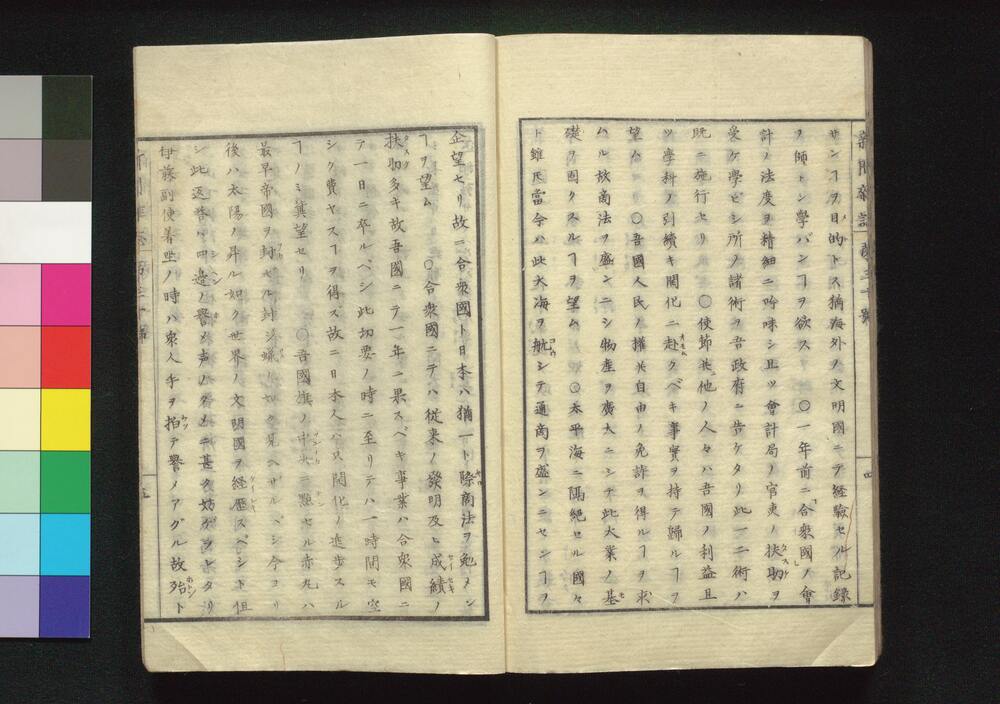 サンヿヲ目的トス猶海外ノ文明國ニテ經驗セル記録
ヲ師トシ學バンヿヲ欲ス 〇一年前ニ合衆國ノ會
計ノ法度ヲ精細ニ吟味シ且ツ會計局ノ官吏ノ扶助ヲ
受ケ學ビシ所ノ諸術ヲ吾政府ニ告ケタリ此一二術ハ
既ニ施行セリ 〇使節其他ノ人々ハ吾國ノ利益且
ツ學科ノ引續キ開化ニ赴クベキ事實ヲ持テ歸ルヿヲ
望ム 〇吾國人民ノ權其自由ノ免許ヲ得ルヿヲ求
ムル故商法ヲ盛ンニシ物産ヲ廣大ニシテ此大業ノ基
礎ヲ固クスルヿヲ望ム 〇太平海ニ隔絶セル國々
ト雖𪜈當今ハ此大海ヲ航シテ通商ヲ盛ンニセンヿヲ
企望セリ故ニ合衆國ト日本ハ猶一ト際商法ヲ勉メン
ヿヲ望ム 〇合衆國ニテハ従来ノ發明及ヒ成績ノ
扶助多キ故吾國ニテ一年ニ果スベキ事業ハ合衆國ニ
テ一日ニ卒ルベシ此切要ノ時ニ至リテハ一時間モ空
シク費ヤスヿヲ得ス故ニ日本人ハ只開化ノ進歩スル
ヿノミ冀望セリ 〇吾國旗ノ中央ニ點セル赤丸ハ
最早帝國ヲ封セル封シ蝋ノ如ク見ヘサルベシ今ヨリ
後ハ太陽ノ昇ル如ク世界ノ文明國ヲ經歴スベシト但
シ此返答ハ四邉ノ譽メ声ノタメニ甚タ妨ゲラレタリ
伊藤副使着坐ノ時ハ衆人手ヲ拍テ譽メアグル故殆ト